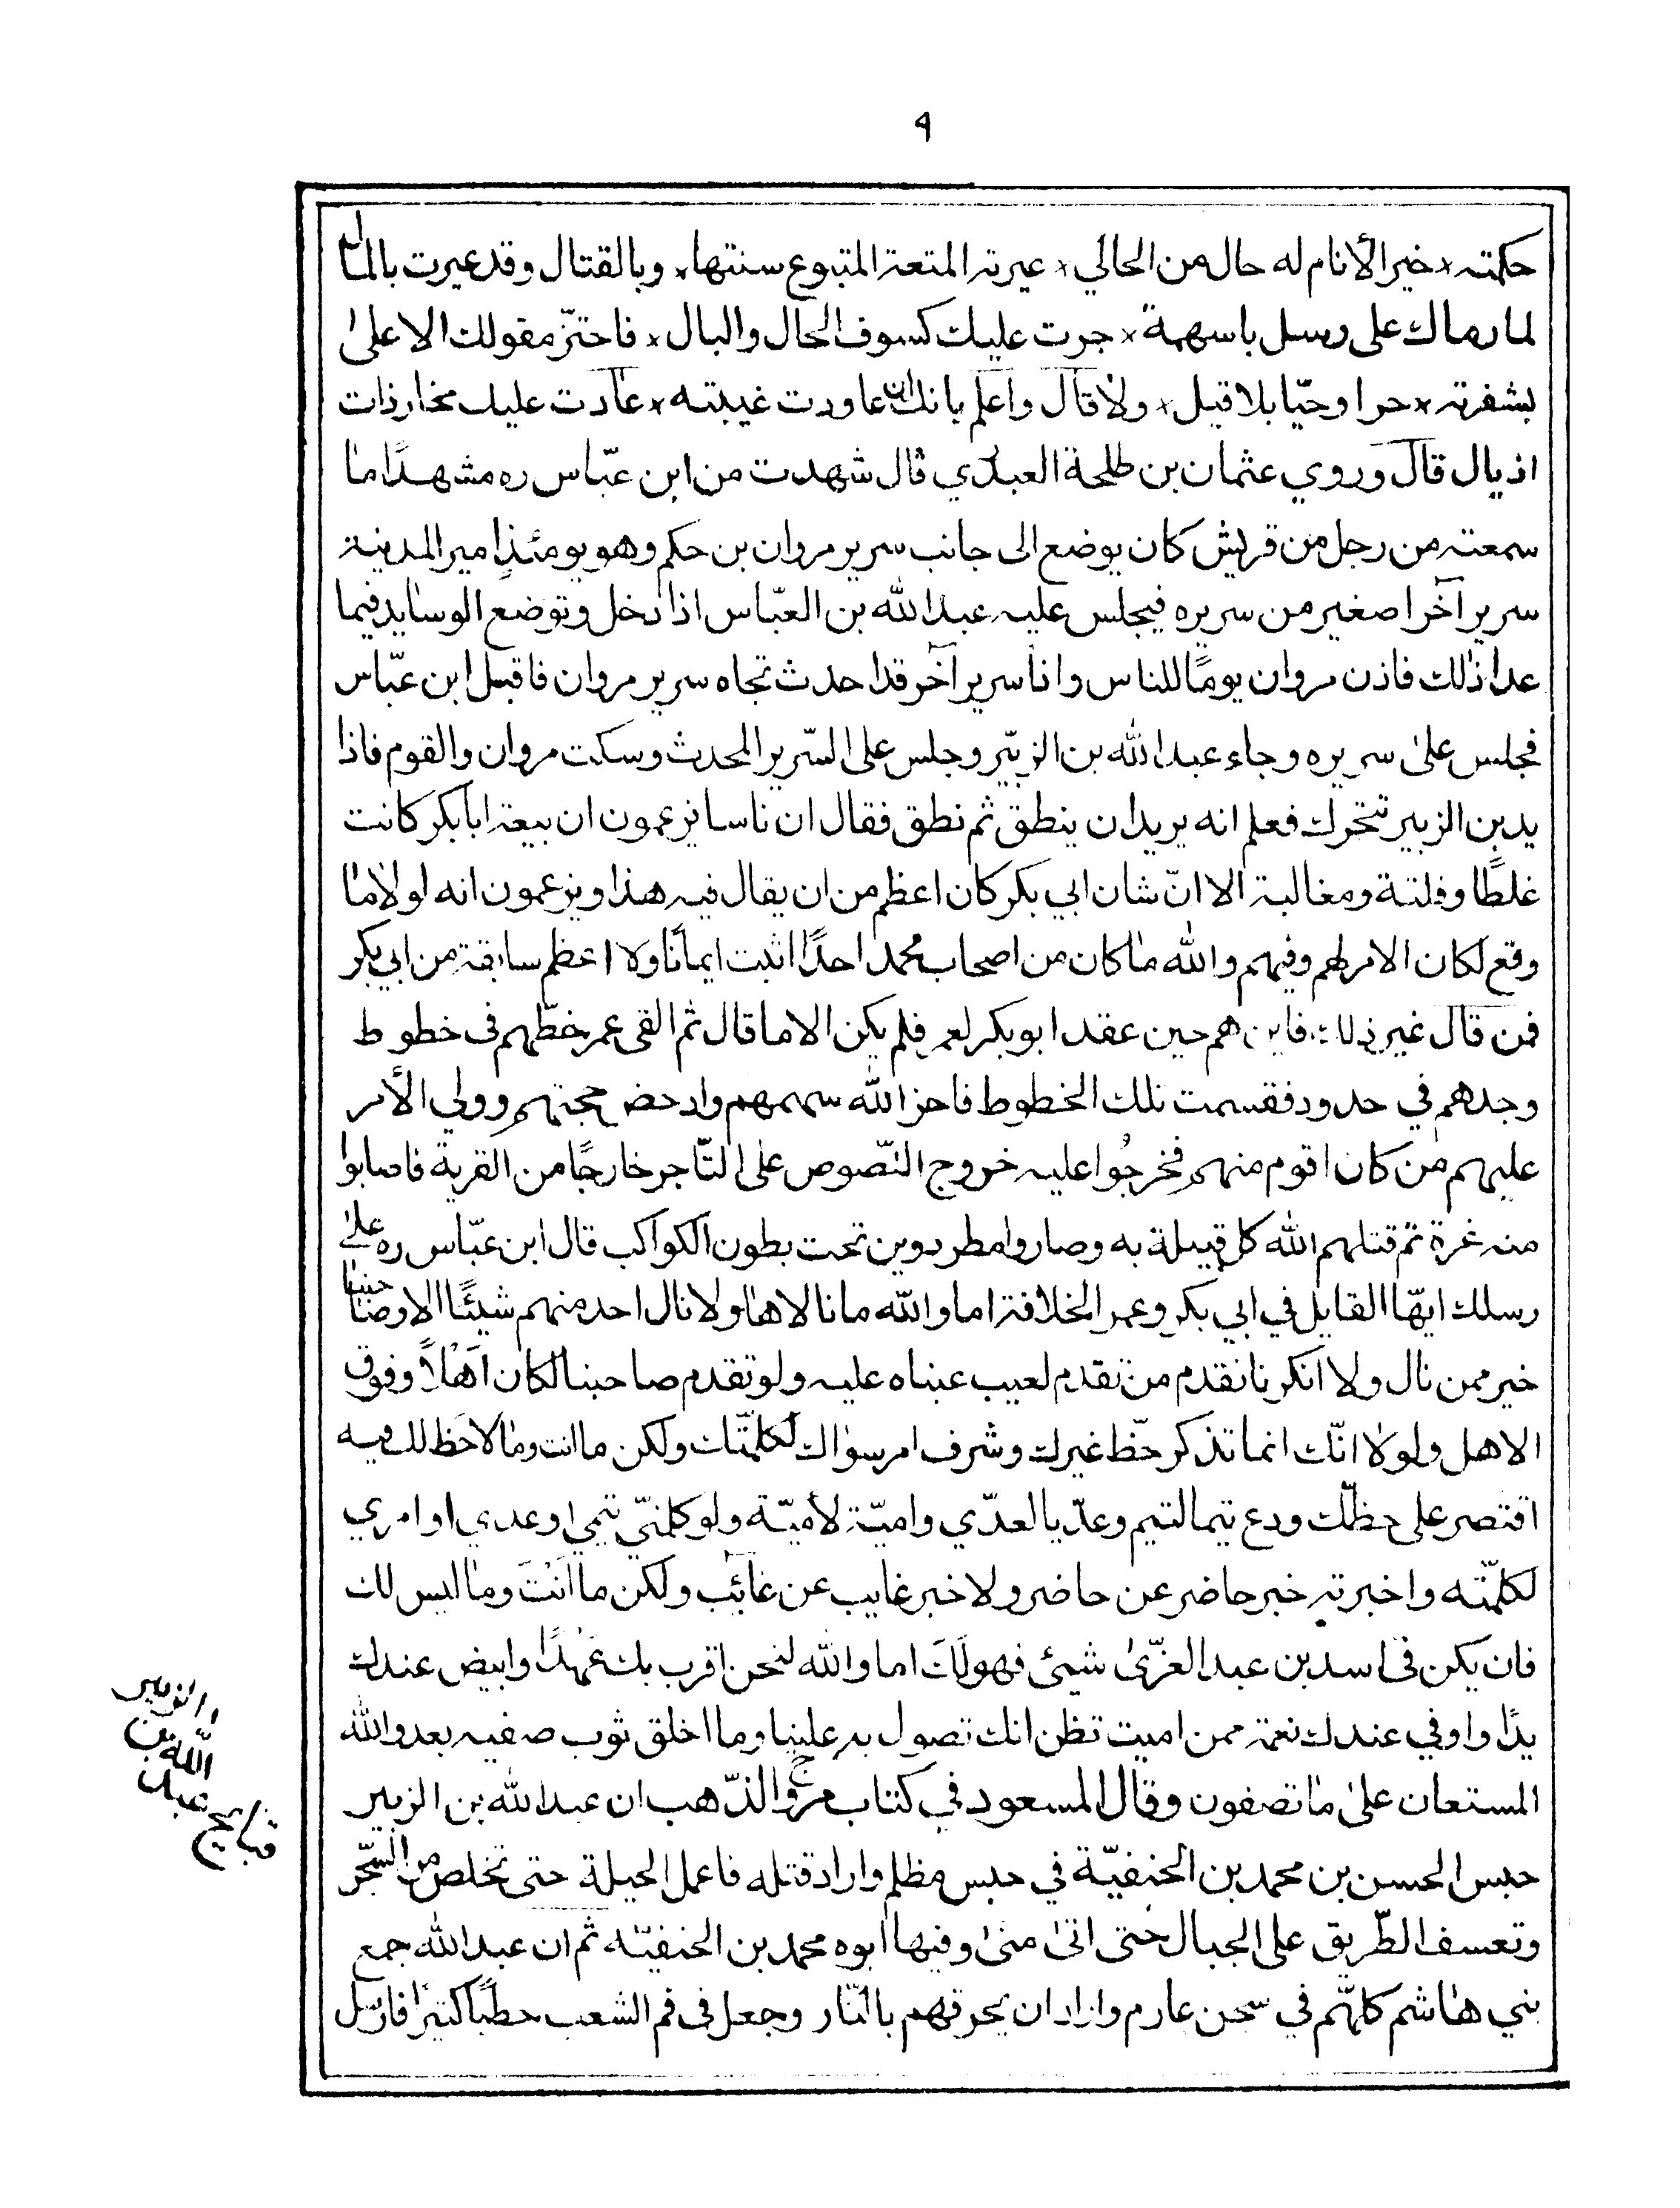 ٩
حكمته × خير الأنام له حال من الحالي × عيرته المتعة المتبوع سنتها × وبالقتال وقد عيرت بالمال
لما رماك على رسل باسهمة × جرت عليك كسوف الحال والبال × فاحتزّ مقولك الاعلى
بشفرته × حرا وحيّا بلا قيل × ولا قال واعلم بانك ان عاودت غيبته × عادت عليك مخازذات
اذيال قال وروي عثمان بن طلحة العبدي قال شهدت من ابن عبّاس ره مشهدًا ما
سمعته من رجل من قريش كان يوضع الى جانب سرير مروان بن حكم وهو يومئذٍ امير المدينة
سرير آخر اصغير من سريره فيجلس عليه عبد الله بن العبّاس اذا دخل وتوضع الوسايد فيما
عدا ذلك فاذن مروان يومًا للناس واذا سرير آخر قد احدث تجاه سرير مروان فاقبل ابن عبّاس
فجلس على سريره وجاء عبد الله بن الزبيّر وجلس على السّرير المحدث وسكت مروان والقوم فاذا
يد بن الزبير تتحرك فعلم انه يريد ان ينطق ثم نطق فقال ان ناسا يزعمون ان بيعة ابابكر كانت
غلطًا وفلتة ومغالبة الا انّ شان ابي بكر كان اعظم من ان يقال فيه هذا ويزعمون انه لولا ما
وقع لكان الامر لهم وفيهم والله ما كان من اصحاب محمد احدًا اثبت ايمانًا ولا اعظم سابقة من ابي بكر
فمن قال غير ذلك فاين هم حين عقد ابوبكر لعمر فلم يكن الا ما قال ثم القى عمر حظّهم في خطوط
وجدهم في حدود فقسمت تلك الخطوط فاخز الله سهمهم وادحض حجتهم وولي الأمر
عليهم من كان اقوم منهم فخرجُوا عليه خروج اللصّوص على التّاجر خارجًا من القرية فاصابوا
منه غرة ثم قتلهم الله كل قبيلة به وصاروا مطرودين تحت بطون الكواكب قال ابن عبّاس ره على
رسلك ايهّا القايل في ابي بكر وعمر الخلافة اما والله ما نالاها ولا نال احد منهم شيئًا الا وصاحبنا
خير ممن نال ولا انكرنا تقدم من تقدم لعيب عبناه عليه ولو تقدم صاحبنا لكان اَهْلاً وفوق
الاهل ولولا انّك انما تذكر حّظ غيرك وشرف امر سواك لكلمّتك ولكن ما انت وما لا حَظ لك فيه
اقتصر على حظّك ودع تيما لتيم وعدّيا لعدّي واميّة لأميّة ولو كلمنيّ تيمي او عدي او امري
لكلمّته واخبرته خبر حاضر عن حاضر ولا خبر غايب عن غائب ولكن ما اَنْتَ وما ليس لك
فان يكن في اسد بن عبد العزّى شيئ فهو لَكَ اما والله لنحن اقرب بك عَهدًا وابيض عندك
يدًا واوفي عندك نعمة ممن اميت تظن انك تصول به علينا وما اخلق ثوب صفيه بعد والله
المستعان على ما تصفون وقال المسعود في كتاب مروج الذّهب ان عبد الله بن الزبير
حبس الحسن بن محمد بن الحنفيّة في حبس مظلم واراد قتله فاعمل الحيلة حتى تخلص من السّجن
وتعسف الطّريق على الجبال حتى اتى منى وفيها ابوه محمد بن الحنفيّه ثم ان عبد الله جمع
بني هاشم كلهّم في سجن عارم واراد ان يحرقهم بالنّار وجعل في فم الشعب حطبًا كثيرًا فارسل
قبايح عبد الله بن الزبير